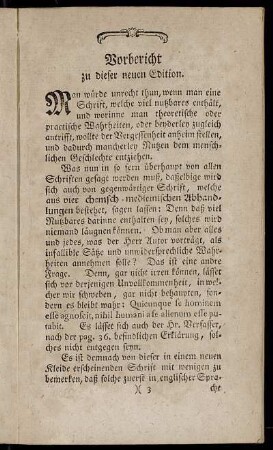 Vorbericht
zu dieser neuen Edition.
Man würde unrecht thun, wenn man eine
Schrift, welche viel nutzbares enthält,
und worinne man theoretische oder
practische Wahrheiten, oder beyderley zugleich
antrifft, wollte der Vergessenheit anheim stellen,
und dadurch mancherley Nutzen dem mensch-
lichen Geschlechte entziehen.
Was nun in so fern überhaupt von allen
Schriften gesagt werden muß, dasselbige wird
sich auch von gegenwärtiger Schrift, welche
aus vier chemisch-medicinischen Abhand-
lungen bestehet, sagen lassen: Denn daß viel
Nutzbares darinne enthalten sey, solches wird
niemand läugnen können. Ob man aber alles
und jedes, was der Herr Autor vorträgt, als
infallible Sätze und unwidersprechliche Wahr-
heiten annehmen solle? Das ist eine andre
Frage. Denn, gar nicht irren können, lässet
sich vor derjenigen Unvollkommenheit, in wel-
cher wir schweben, gar nicht behaupten, son-
dern es bleibt wahr: Quicunque se hominem
esse agnoscit, nihil humani a se alienum esse pu-
tabit. Es lässet sich auch der Hr. Verfasser,
nach der pag. 36. befindlichen Erklärung, sol-
ches nicht entgegen seyn.
Es ist demnach von dieser in einem neuen
Kleide erscheinenden Schrift mit wenigen zu
bemerken, daß solche zuerst in englischer Spra-
)( 3 che